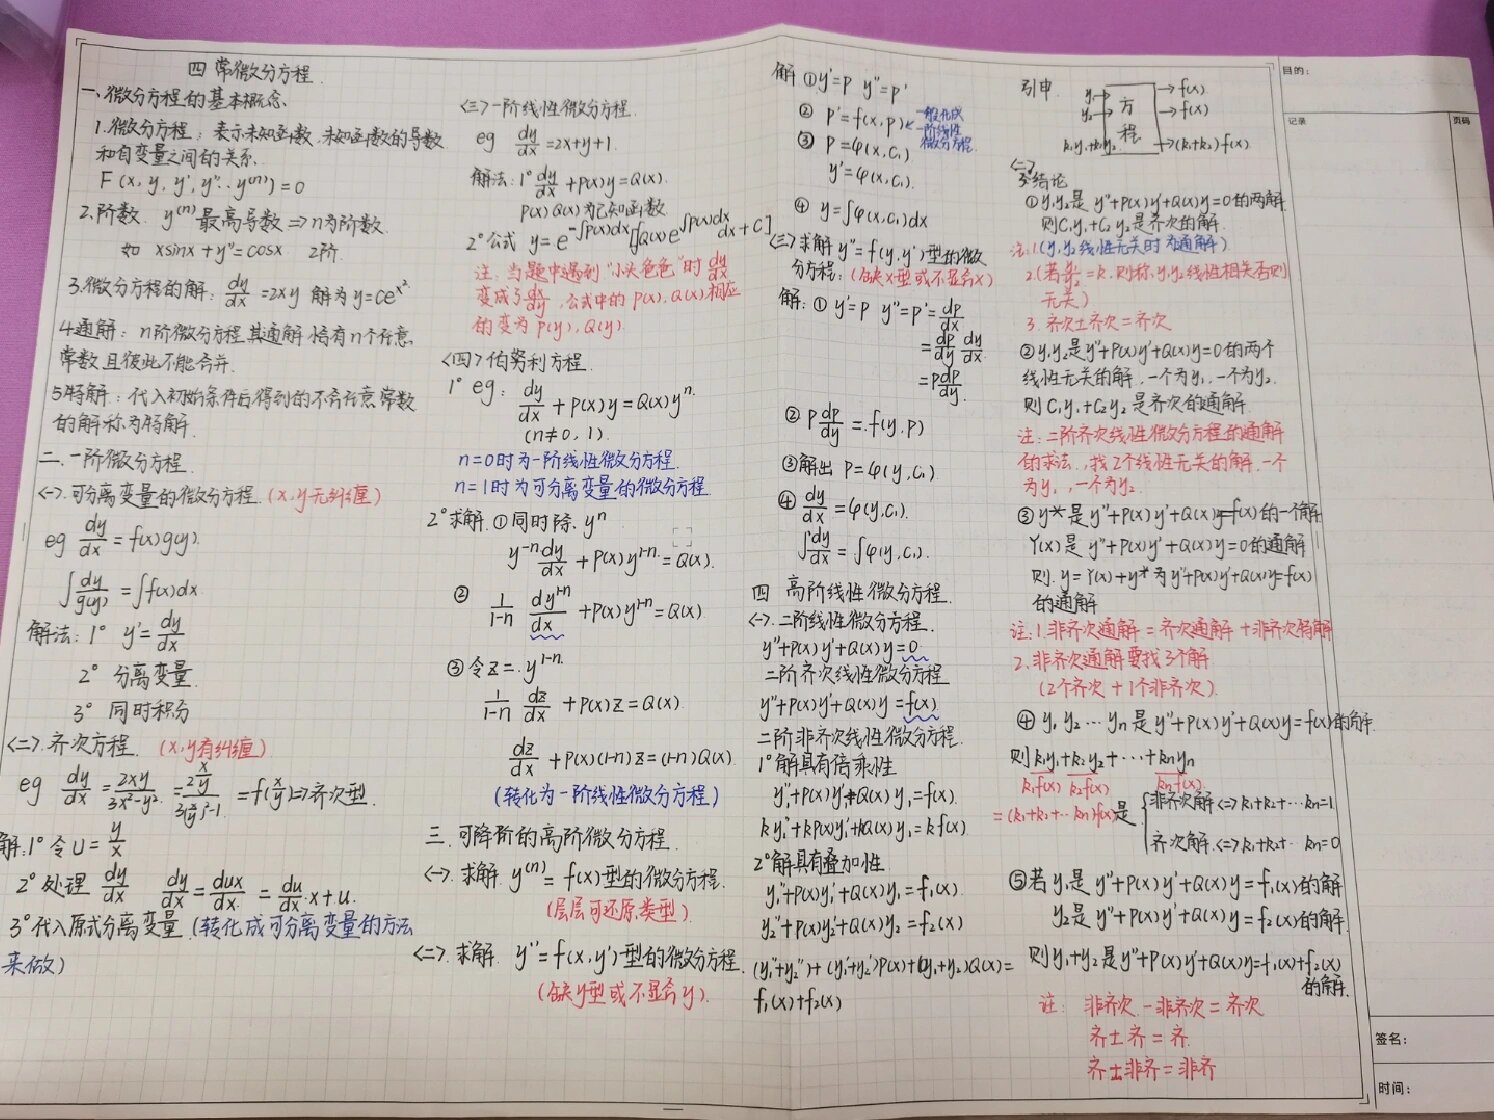 四 常微分方程.
一、微分方程的基本概念、
1.微分方程：表示未知函数、未知函数的导数
和自变量之间的关系、
F(x, y, y', y''‥y⁽ⁿ⁾)=0
2、阶数. y⁽ⁿ⁾最高导数 => n为阶数.
如 xsinx+y''=cosx. 2阶.
3.微分方程的解: dy/dx=2xy 解为y=ce^x².
4.通解: n阶微分方程 其通解 恰有n个任意
常数且彼此不能合并.
5.特解: 代入初始条件后得到的不含任意常数
的解称为特解.
二、一阶微分方程.
<一>.可分离变量的微分方程. (x,y无纠缠)
eg dy/dx=f(x)g(y).
∫dy/g(y)=∫f(x)dx
解法: 1° y'=dy/dx
2° 分离变量.
3° 同时积分
<二>.齐次方程. (x,y有纠缠)
eg dy/dx=2xy/3x²-y²=2x/y/3(x/y)²-1=f(x/y)=>齐次型.
解: 1° 令u=y/x
2° 处理dy/dx dy/dx=dux/dx=du/dx·x+u.
3°代入原式分离变量.(转化成可分离变量的方法
来做)
<三>一阶线性微分方程.
eg dy/dx=2x+y+1.
解法: 1° dy/dx+P(x)y=Q(x).
P(x) Q(x)为已知函数
2°公式 y=e^-∫P(x)dx[∫Q(x)e^∫P(x)dx dx+C]
注: 当题中遇到"小头爸爸"时 dy/dx
变成了dx/dy, 公式中的P(x), Q(x)相应
的变为P(y), Q(y).
<四>伯努利方程.
1° eg: dy/dx+P(x)y=Q(x)yⁿ.
(n≠0, 1).
n=0时为一阶线性微分方程.
n=1时为可分离变量的微分方程
2°求解.①同时除.yⁿ
y⁻ⁿdy/dx+P(x)y¹⁻ⁿ=Q(x).
② 1/1-n dy¹⁻ⁿ/dx+P(x)y¹⁻ⁿ=Q(x)
③令z=.y¹⁻ⁿ.
1/1-n dz/dx+P(x)z=Q(x).
dz/dx+P(x)(1-n)z=(1-n)Q(x)
(转化为一阶线性微分方程)
三.可降阶的高阶微分方程.
<一>.求解y⁽ⁿ⁾=f(x)型的微分方程.
(层层可还原.类型)
<二>.求解. y''=f(x,y')型的微分方程.
(缺y型或不显含y).
解 ①y'=p y''=p'
② p'=f(x,p)
一般化成
一阶线性
微分方程.
③ p=φ(x,c₁)
y'=φ(x,c₁).
④ y=∫φ(x,c₁)dx
<三>求解y''=f(y,y')型的微
分方程: (缺x型或不显含x)
解: ① y'=p y''=p'=dp/dx
=dp/dy dy/dx
=pdp/dy.
② pdp/dy=.f(y.p)
③解出 p=φ(y,c₁).
④ dy/dx=φ(y,c₁).
∫dy/dx=∫φ(y,c₁).
四 高阶线性微分方程.
<一>.二阶线性微分方程.
y''+P(x)y'+Q(x)y=0.
二阶齐次线性微分方程
y''+P(x)y'+Q(x)y=f(x).
二阶非齐次线性微分方程.
1°解具有倍乘性
y₁''+P(x)y₁'+Q(x)y₁=f(x).
ky₁''+kP(x)y₁'+kQ(x)y₁=kf(x).
2°解具有叠加性
y₁''+P(x)y₁'+Q(x)y₁=f₁(x).
y₂''+P(x)y₂'+Q(x)y₂=f₂(x)
(y₁''+y₂'')+(y₁'+y₂')P(x)+(y₁+y₂)Q(x)=
f₁(x)+f₂(x)
引申.
y₁ → f(x)
方
y₂ → f(x)
程.
k₁y₁+k₂y₂ →(k₁+k₂)f(x)
<二>
结论
①y₁y₂是y''+P(x)y'+Q(x)y=0的两解
则C₁y₁+C₂y₂是齐次的解.
注.1(y₁y₂线性无关时为通解)
2.(若y₁/y₂=k.则称y₁y₂线性相关否则
无关)
3. 齐次±齐次=齐次
②y₁y₂是y''+P(x)y'+Q(x)y=0的两个
线性无关的解. 一个为y₁.一个为y₂.
则C₁y₁+C₂y₂是齐次的通解.
注: 二阶齐次线性微分方程的通解
的求法., 找2个线性无关的解. 一个
为y₁, 一个为y₂.
③y*是y''+P(x)y'+Q(x)y=f(x)的一个解
Y(x)是y''+P(x)y'+Q(x)y=0的通解
则. y=Y(x)+y*为y''+P(x)y'+Q(x)y=f(x)
的通解
注.1.非齐次通解=齐次通解+非齐次特解
2.非齐次通解要找3个解
(2个齐次+1个非齐次).
④ y₁ y₂…yₙ是y''+P(x)y'+Q(x)y=f(x)的解.
则k₁y₁+k₂y₂+…+kₙyₙ
k₁f(x) k₂f(x) kₙf(x).
=(k₁+k₂+‥kₙ)f(x) 是
非齐次解<=>k₁+k₂+…kₙ=1
齐次解.<=>k₁+k₂+…kₙ=0
⑤若y₁是y''+P(x)y'+Q(x)y=f₁(x)的解
y₂是y''+P(x)y'+Q(x)y=f₂(x)的解.
则y₁+y₂是y''+P(x)y'+Q(x)y=f₁(x)+f₂(x)
的解.
注: 非齐次-非齐次=齐次
齐±齐=齐.
齐±非齐=非齐
目的：
记录
页码
签名：
时间：